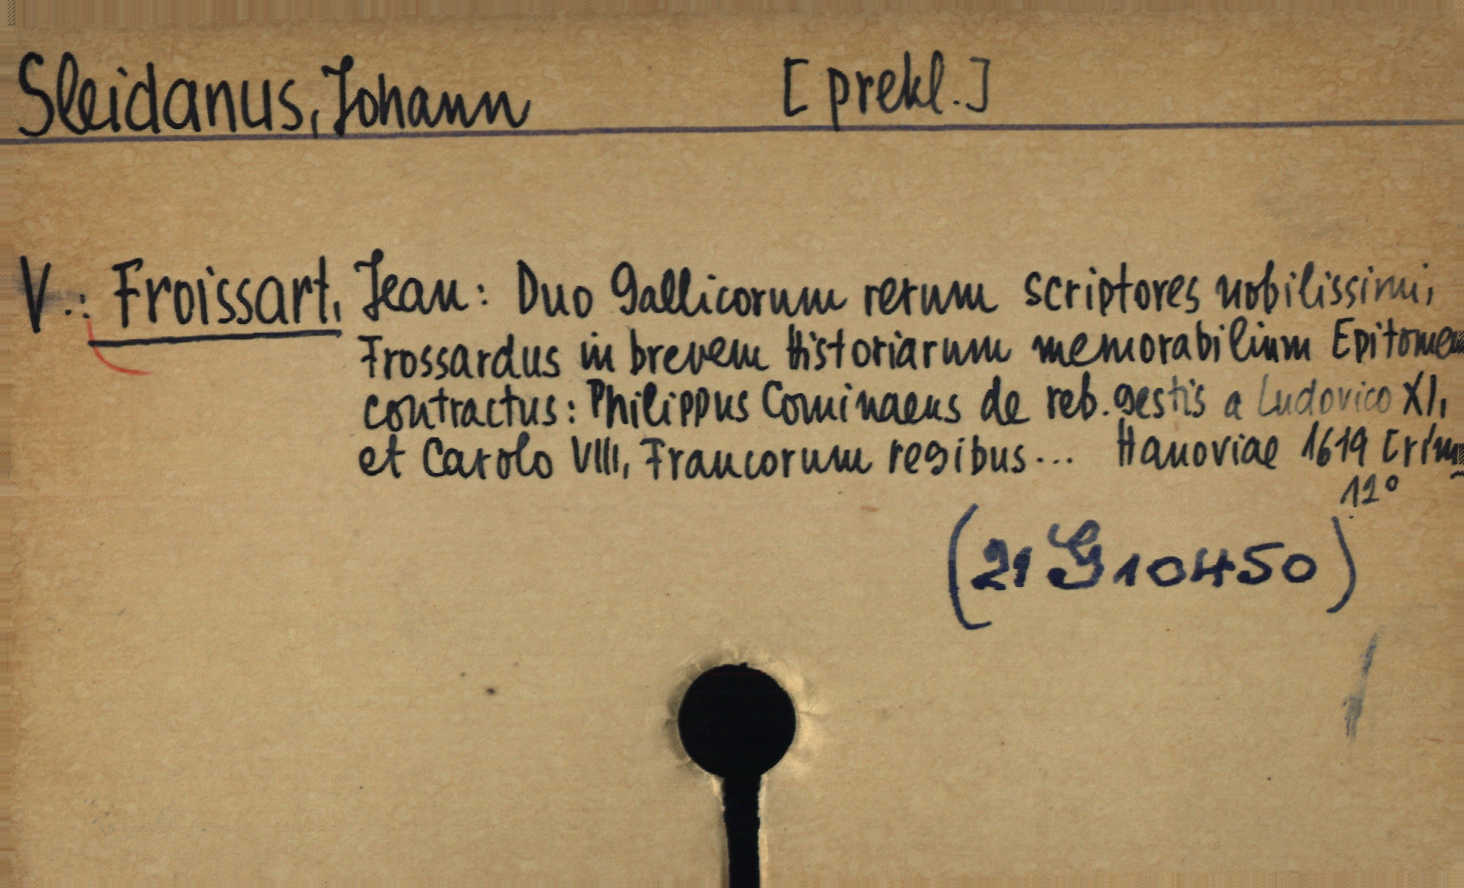 Sleidanus, Johann [prekl.]
V.: Froissart, Jean: Duo Gallicorum rerum scriptores nobilissimi,
Frossardus in brevem historiarum memorabilium Epitomen
contractus: Philippus Cominaeus de reb. gestis a Ludovico XI,
et Carolo VIII, Francorum regibus... Hanoviae 1619
12°
(21 G 10450)